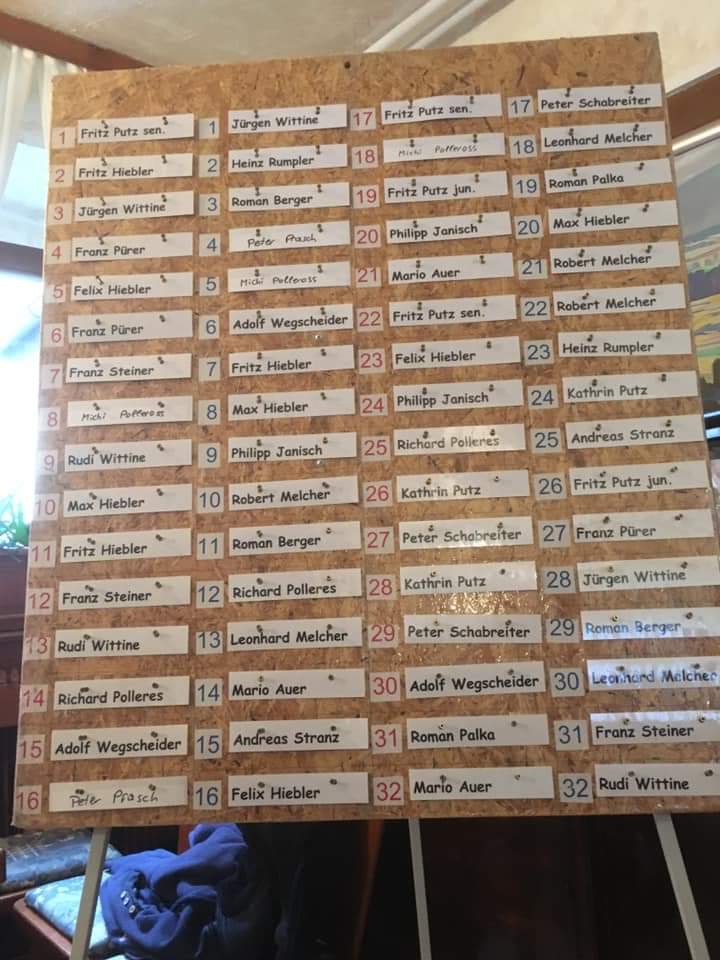 1 Fritz Putz sen.
2 Fritz Hiebler
3 Jürgen Wittine
4 Franz Pürer
5 Felix Hiebler
6 Franz Pürer
7 Franz Steiner
8 Michi Polleross
9 Rudi Wittine
10 Max Hiebler
11 Fritz Hiebler
12 Franz Steiner
13 Rudi Wittine
14 Richard Polleres
15 Adolf Wegscheider
16 Peter Prasch
1 Jürgen Wittine
2 Heinz Rumpler
3 Roman Berger
4 Peter Prasch
5 Michi Polleross
6 Adolf Wegscheider
7 Fritz Hiebler
8 Max Hiebler
9 Philipp Janisch
10 Robert Melcher
11 Roman Berger
12 Richard Polleres
13 Leonhard Melcher
14 Mario Auer
15 Andreas Stranz
16 Felix Hiebler
17 Fritz Putz sen.
18 Michi Polleross
19 Fritz Putz jun.
20 Philipp Janisch
21 Mario Auer
22 Fritz Putz sen.
23 Felix Hiebler
24 Philipp Janisch
25 Richard Polleres
26 Kathrin Putz
27 Peter Schabreiter
28 Kathrin Putz
29 Peter Schabreiter
30 Adolf Wegscheider
31 Roman Palka
32 Mario Auer
17 Peter Schabreiter
18 Leonhard Melcher
19 Roman Palka
20 Max Hiebler
21 Robert Melcher
22 Robert Melcher
23 Heinz Rumpler
24 Kathrin Putz
25 Andreas Stranz
26 Fritz Putz jun.
27 Franz Pürer
28 Jürgen Wittine
29 Roman Berger
30 Leonhard Melcher
31 Franz Steiner
32 Rudi Wittine